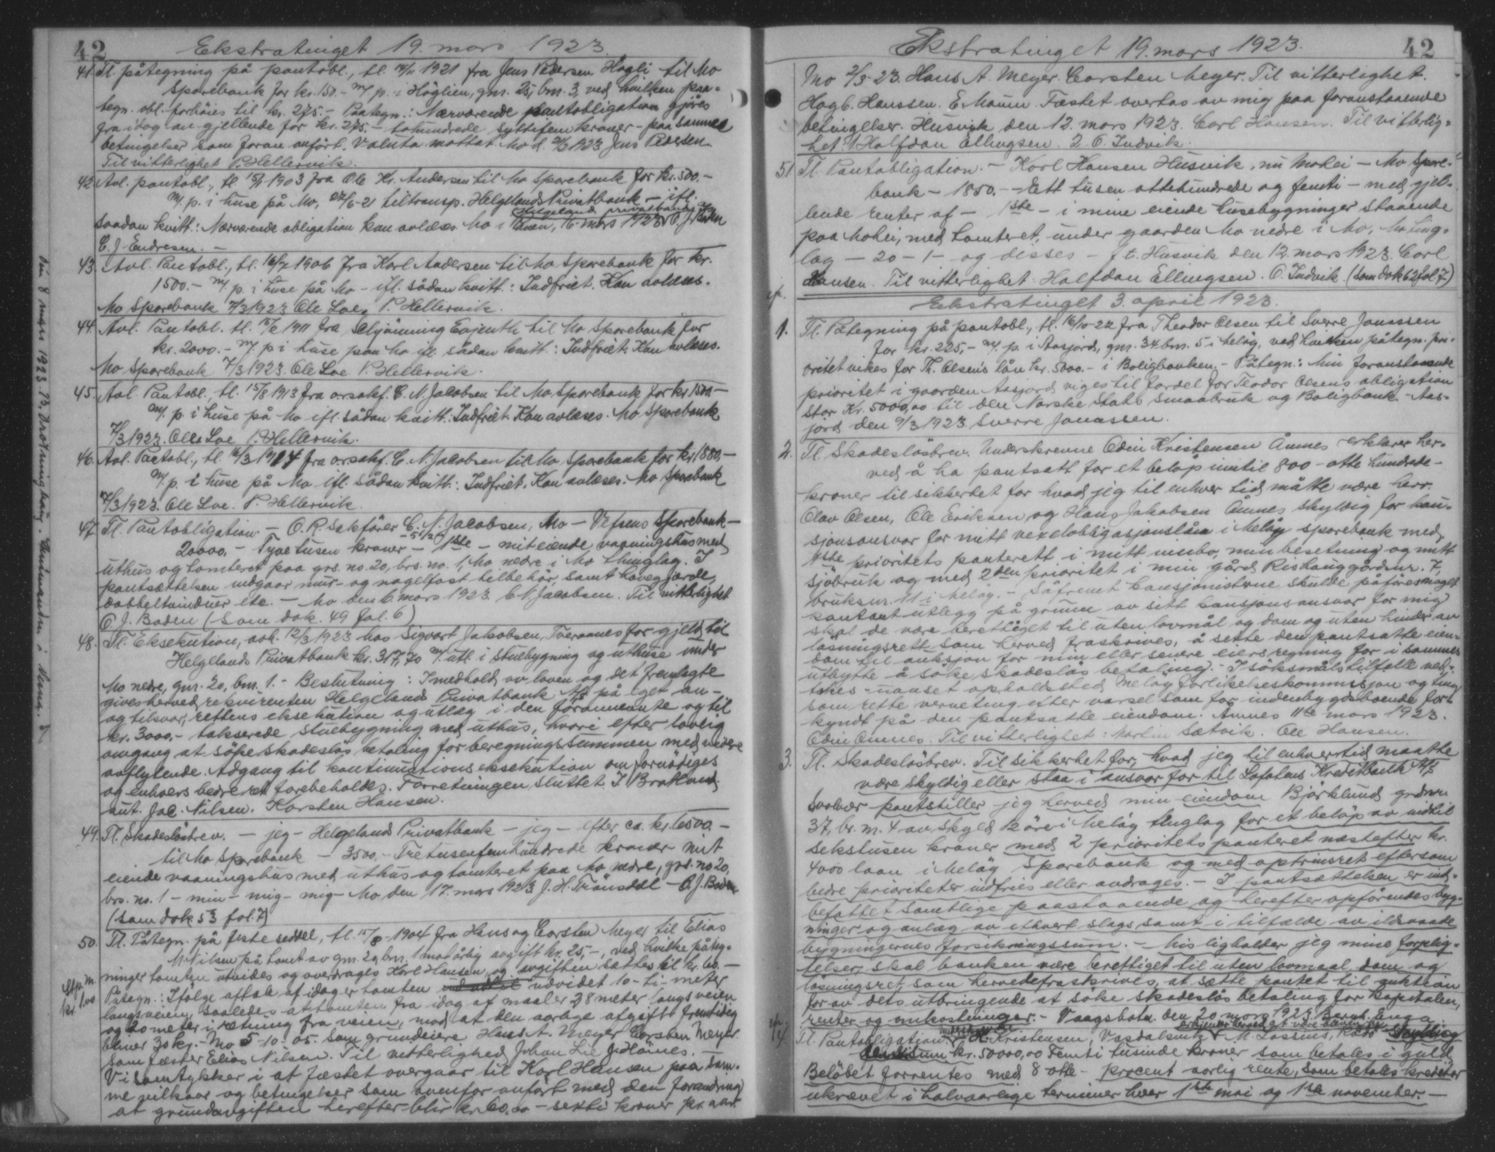 42
Ekstratinget 19. mars 1923.
41. Tl. påtegning på pantobl., tl. 1921 fra Jens Pedersen Høgli til Mo
Sparebank for kr. 150.- m/ p. i Høglien, gnr. 25, bnr. 3, ved hvilken paa-
tegn. obl. forhöies til kr. 275.- Paategn.: Nærværende pantobligation gjöres
fra idag av gjellende for kr. 275.- tohundrede syttifem kroner - paa samme
betingelser som foran anfört. Valuta mottat Mo d. 1923 Jens Pedersen
Til vitterlighet P. Hellervik.
42. Avl. pantobl., tl. 1903 fra Ole Kr. Andersen til Mo Sparebank for kr. 500.-
m/ p. i huse på Mo, transp. Helgelands Privatbank - ifl.
saadan kvitt.: Nærværende obligation kan avlæses Mo i Ranen, 16 mars 1923
Helgeland privatbank
E. J. Endresen. -
43. Avl. Pantobl., tl. 1906 fra Karl Andersen til Mo Sparebank for kr.
1500.- m/ p. i huse på Mo - ifl. sådan kvitt.: Indfriet. Kan avlæses.
Mo Sparebank 7/3 1923 Ole Loe P. Hellervik.
44. Avl. Pantobl. tl. 1911 fra til Mo Sparebank for
kr. 2000.- m/ p i huse paa Mo ifl. sådan kvitt.: Indfriet. Kan avlæses.
Mo Sparebank 7/3 1923. Ole Loe P. Hellervik.
45. Avl. Pantobl. tl. 15/8 1913 fra orsakf. C. N. Jacobsen til Mo Sparebank for kr. 1500.-
m/ p. i huse på Mo ifl. sådan kvitt. Indfriet. Kan avlæses. Mo Sparebank
7/3 1923. Ole Loe P. Hellervik.
46. Avl. Pantobl., tl. 16/3 1914 fra orsakf. C. N. Jacobsen til Mo Sparebank for kr. 1800.-
m/ p. i huse på Mo ifl. sådan kvitt.: Indfriet. Kan avlæses. Mo Sparebank
7/3 1923. Ole Loe P. Hellervik
47. Tl. Pantobligation - O. R. Sakförer C. N. Jacobsen, Mo - Vefsens Sparebank -
20000.- Tyve tusen kroner - 1ste - mit eiende vaaningshus med
uthus og tomteret paa grs. no. 20, brs. no. 1, Mo nedre i Mo thinglag. I
pantsættelsen indgaar mur- og nagelfast tilbehör, samt havegjærde,
dobbeltvinduer etc. - Mo den 6. mars 1923 C. N. Jacobsen. Til vitterlighet
O J. Boden (Som dok. 49 fol. 6)
48. Tl. Eksekution, avh. 12/3 1923 hos Sigvart Jakobsen, for gjeld til
Helgelands Privatbank kr. 317,20 m/ utl. i stuebygning og uthuse under
Mo nedre, gnr. 20, bnr. 1. - Beslutning: I medhold av loven og det fremlagte
gives herved rekvirenten Helgelands Privatbank A/S på eget an-
og tilsvar, rettens eksekution og utlæg i den foranneævnte og til
kr. 3000.- takserede stuebygning med uthus, hvori efter lovlig
omgang at söke skadeslös betaling for beregningssummen med videre
avflytende. Adgang til kontinuationseksekution om fornödiges
og enhvers bedre ret forbeholdes. Forretningen sluttet I Bratland
aut. Jac. Nilsen. Karsten Hansen.
49. Tl. Skadeslösbrev. - jeg - Helgelands Privatbank - jeg - efter ca. kr. 6500.-
til Mo Sparebank - 3500.- Tretusenfemhundrede kroner mit
eiende vaaningshus med uthus og tomteret paa Mo nedre, grs. no 20,
brs. no. 1 - min - mig - mig - Mo den 17. mars 1923 J. H. Tränsdal - O J. Boden
(Som dok 53 fol. 7)
50. Tl. Påtegn. på feste seddel, tl. 1904 fra Hans og Carsten Meyer til Elias
Nilsen på tomt av gnr. 20, bnr. 1 mot årlig avgift kr. 25,-, ved hvilke påteg-
ninger tomten utvides og overdrages Karl Hansen og avgiften sættes til kr. 60.-
Påtegn.: Ifölge aftale af idag er tomten udvidet 10 - ti - meter
langs veien, saaledes at tomten fra idag af maaler 38 meter langs veien
og 20 meter i retning fra veien, mod at den aarlige afgift fremtidig
bliver 30 kr. - Mo 5-10-05. Som grundeiere Hans A. Meyer Carsten Meyer
Som fæster Elias Nilsen. Til vitterlighed Johan Lie J. Höines.
Vi samtykker i at fæstet overgaar til Karl Hansen paa sam-
me vilkaar og betingelser som ovenfor anfört med den forandring
at grundavgiften herefter blir kr. 60.00 - seksti kroner pr. aar.
Ekstratinget 19. mars 1923.
42
Mo 2/3-23. Hans A. Meyer. Carsten Meyer. Til vitterlighet.
Hagb. Hanssen. E. Maum. Fæstet overtas av mig paa foranstaaende
betingelser. Husvik den 12. mars 1923. Carl Hansen. Til vitterlig-
het. 1 Halfdan Ellingsen. 2. O. Indvik.
51 Tl. Pantobligation. - Karl Hansen Husvik, nu Mohei - Mo Spare-
bank - 1850.- Ett tusen ottehundrede og femti - med gjel-
lende renter af - 1ste - i mine eiende husebygninger staaende
paa Mohei, med tomteret, under gaarden Mo nedre i Mo, Mo ting-
lag - 20 - 1 - og disses - f. t. Husvik den 12. mars 1923. Carl
Hansen. Til vitterlighet Halfdan Ellingsen. O. Indvik (Som dok 62 fol 7)
Ekstratinget 3. april 1923.
1. Tl. Påtegning på pantobl., tl. 16/10-22 fra Theodor Olsen til Sverre Jonassen
for kr. 225,- m/ p i Aasjord, gnr. 34 bnr. 5 i Melöy, ved hvilken påtegn. pri-
oritet vikes for Th. Olsens lån kr. 5000.- i Boligbanken. - Påtegn.: Min foranstaaende
prioritet i gaarden Aasjord viges til fordel for Teodor Olsens obligation
stor Kr. 5000,00 til den Norske Stats Smaabruk og Boligbank. Aas-
jord den 9/3 1923 Sverre Jonassen.
2. Tl. Skadeslösbrev. Underskrevne Odin Kristensen Åmnes erklærer her-
ved å ha pantsatt for et belöp inntil 800 - otte hundrede -
kroner til sikkerhet for hvad jeg til enhver tid måtte være herr.
Olav Olsen, Ole Eriksen, og Hans Jakobsen Åmnes skyldig for kau-
sjonsansvar for mitt vexelobligasjonslån i Melöy sparebank med
1ste prioritets panterett i mitt innbo, min besetning og mitt
sjöbruk og med 2den prioritet i min gård Reshauggården. 7,
bruksnr. 11 i Melöy. - Såfremt kausjonisterne skulde påföres noget
kontant utlegg på grunn av sitt kausjonsansvar for mig
skal de være berettiget til uten lovmål og dom og uten hinder av
lösningsrett som herved fraskrives, å sette den pantsatte eien-
dom til auksjon for min eller senere eiers regning for i sammes
utbytte å söke skadeslös betaling. I söksmålstilfælle ved-
takes uanset opholdssted Melöy forlikelseskommisjon og ting
som rette verneting efter varsel som for indenbygdsboende for-
kyndt på den pantsatte eiendom. Åmnes 11te mars 1923.
Odin Åmnes. Til vitterlighet: Martin Sætvik. Ole Hansen.
3. Tl. Skadeslösbrev. Til sikkerhet for, hvad jeg til enhver tid maatte
være skyldig eller staa i ansvar for til Lofotens Kreditbank A/S
Svolvær pantstiller jeg herved min eiendom Björklund grdsnr.
37, br. nr. 4 av skyld köre i Melöy tinglag for et belöp av indtil
sekstusen kroner med 2 prioritets panteret næstefter kr.
4000 laan i Melöy Sparebank og med optrinsret eftersom
bedre prioriteter indfries eller avdrages. - I pantsættelsen er ind-
befattet samtlige paastaaende og herefter opförendes byg-
ninger og anlæg av ethvert slags samt i tilfælde av ildsvaade
bygningernes forsikringssum. - Misligholder jeg mine forplig-
telser, skal banken være berettiget til uten lovmaal, dom og
lösningsret, som herved fraskrives, at sætte pantet til auktion
for av dets utbringende at söke skadeslös betaling for kapitalen,
renter og omkostninger. - Vaagsbotn den 20. mars 1923 Bernt Enga.
Tl. Pantobligation. Kristensen, Vassdalsvik M. Lossius,
kr. 50000,00 Femti tusinde kroner som betales i guld
Belöbet forrentes med 8 otte - procent aarlig rente, som betales kreditor
ukrævet i halvaarlige terminer hver 1ste mai og 1ste november. -